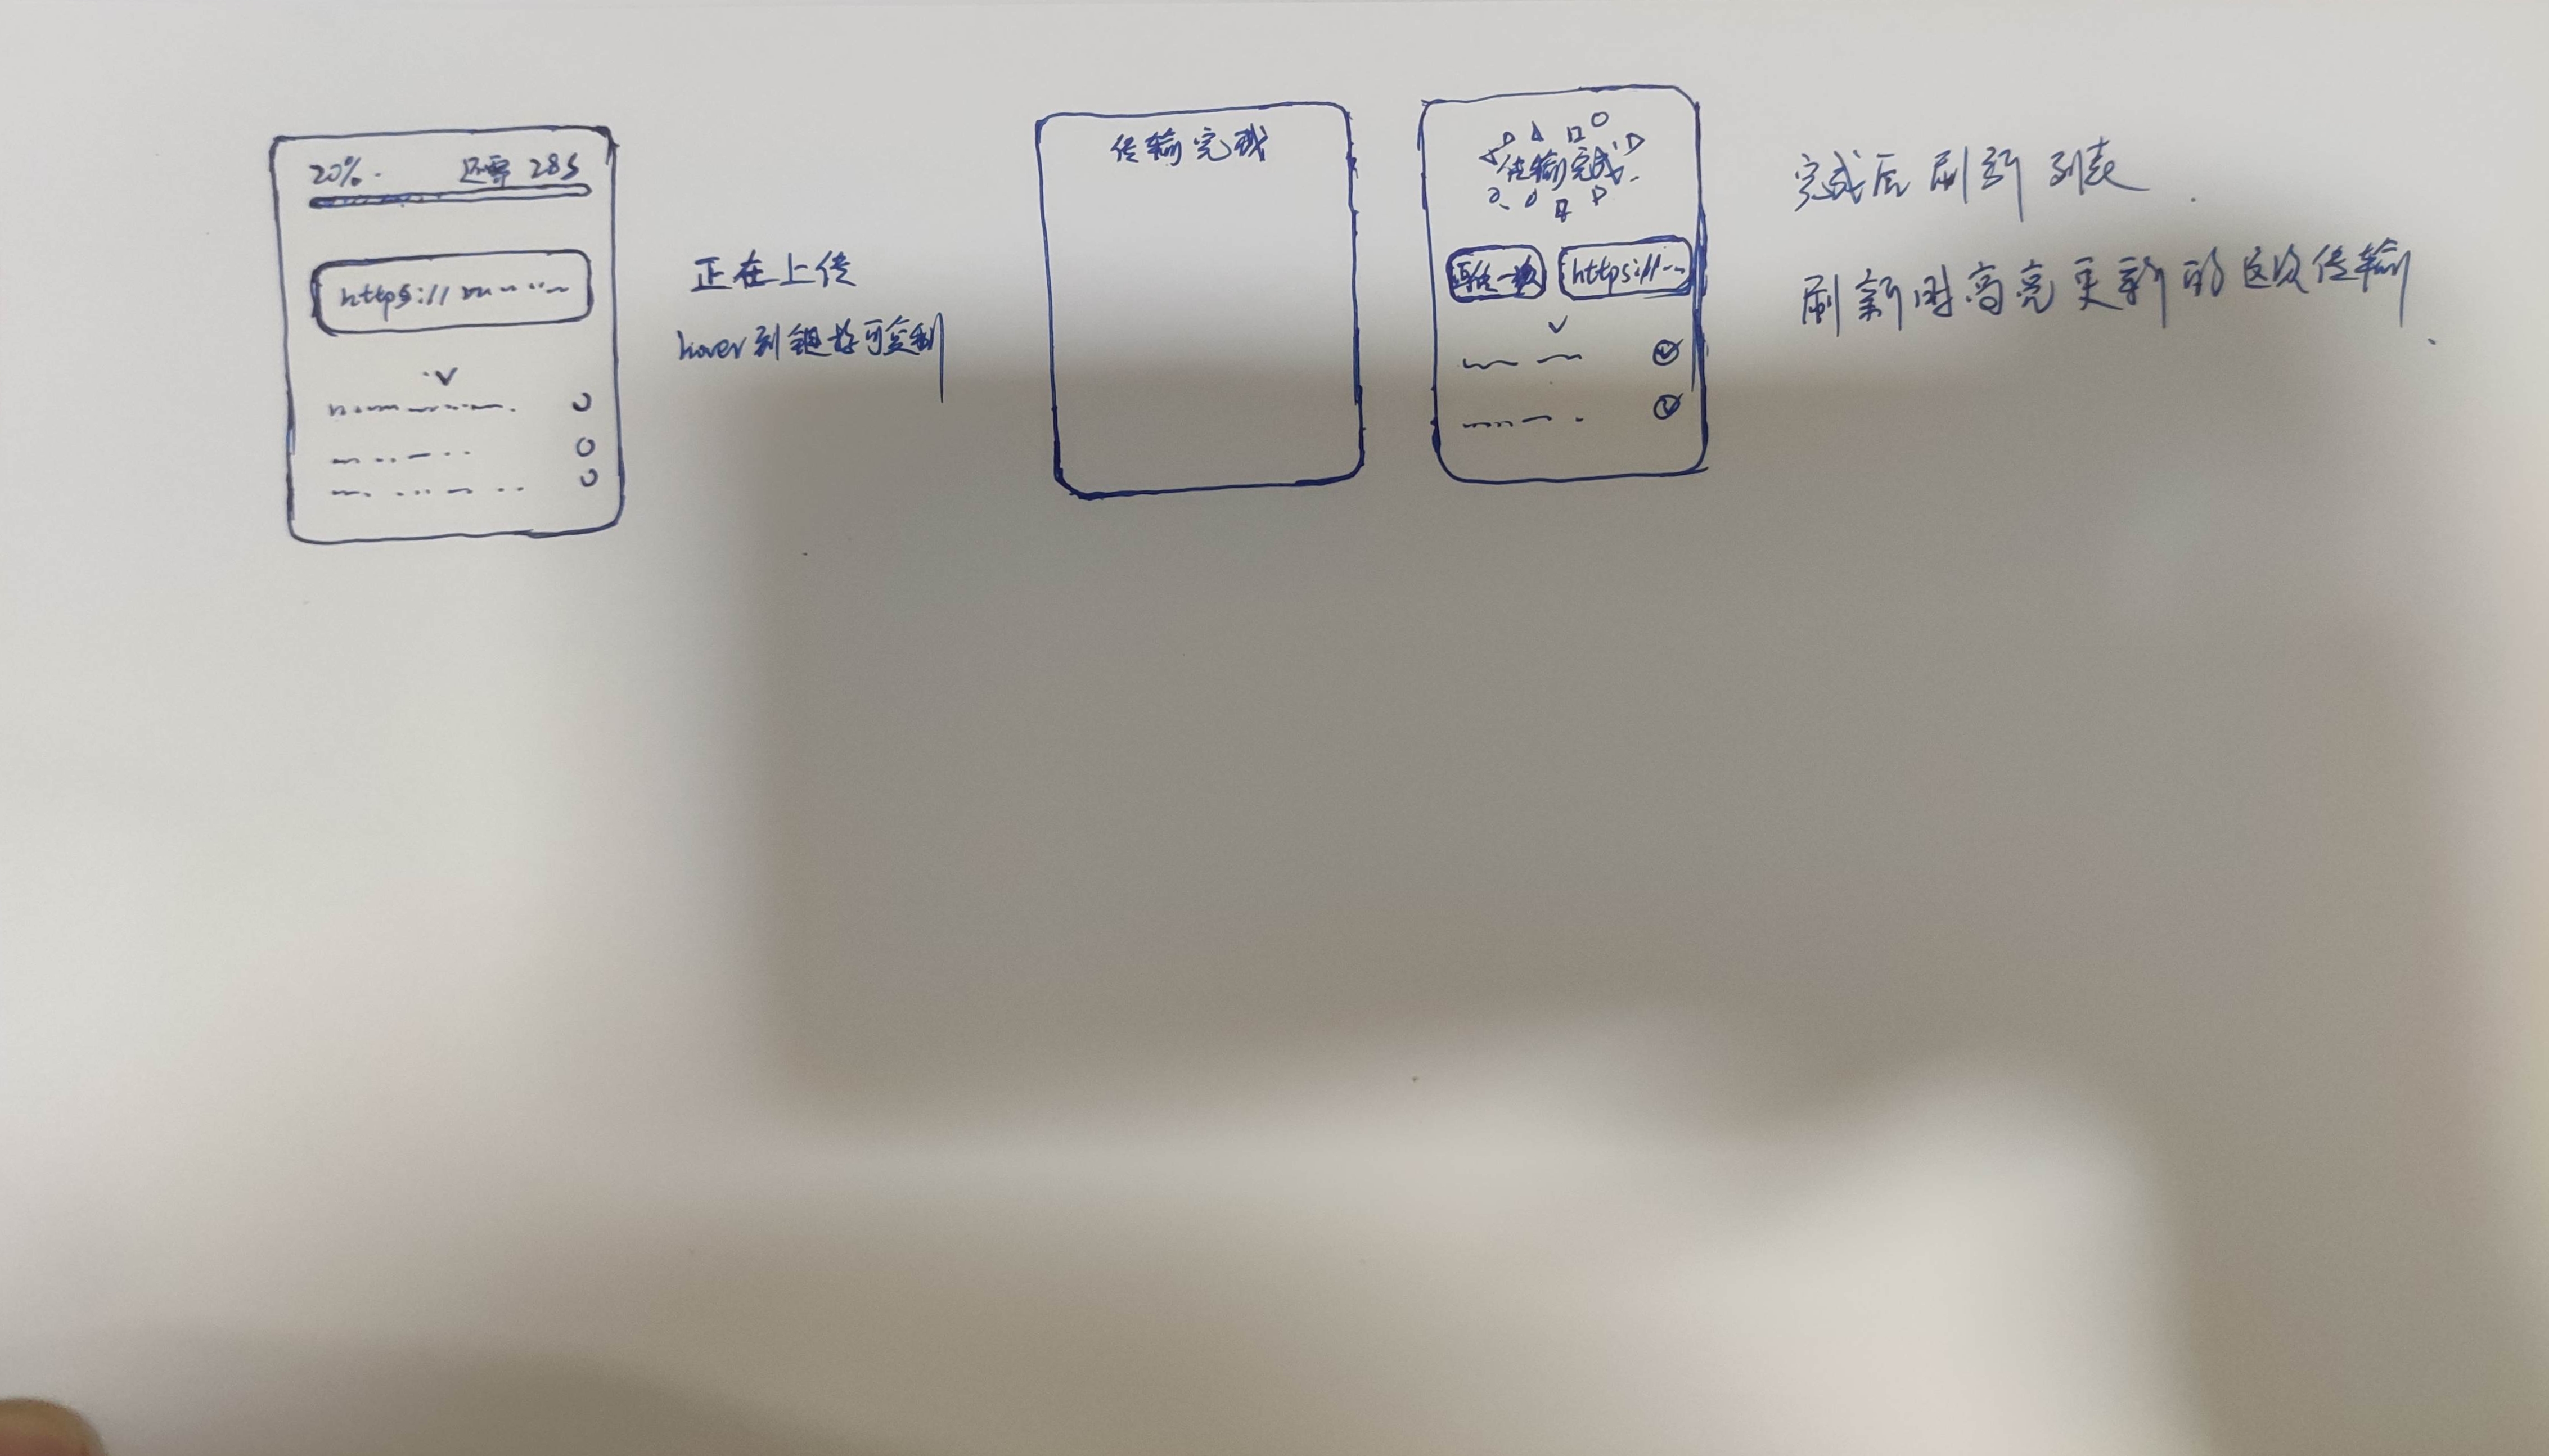 20%. 还需 28s
https://
正在上传
hover到链接可复制
传输完成
传输完成.
再传一次 https://
完成后刷新列表.
刷新时高亮更新的这次传输.